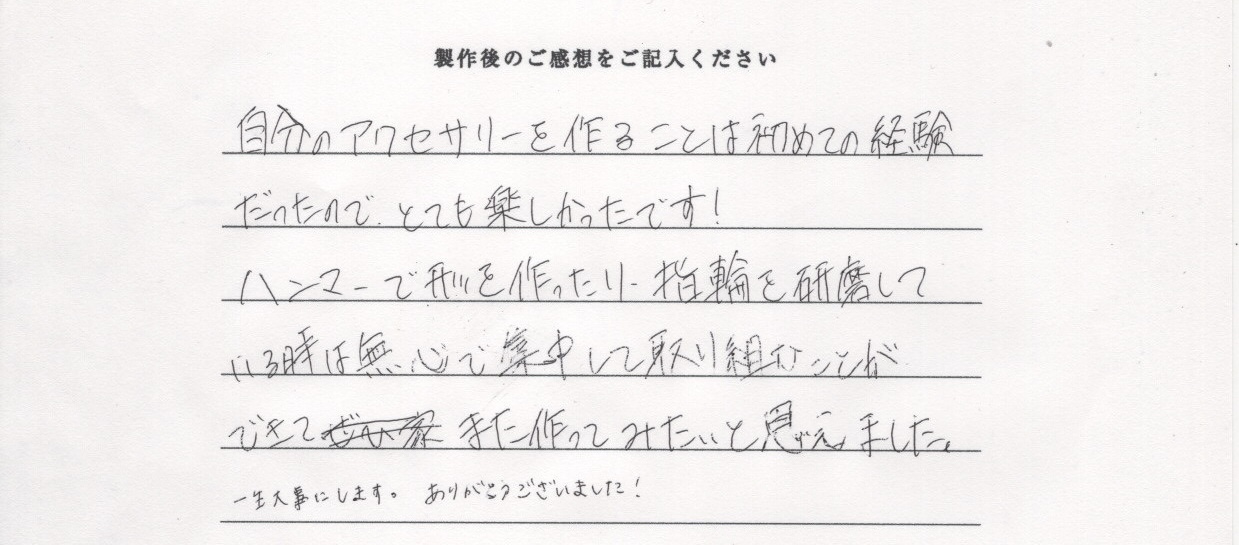 製作後のご感想をご記入ください
自分のアクセサリーを作ることは初めての経験
だったので、とても楽しかったです!
ハンマーで形を作ったり、指輪を研磨して
いる時は無心で集中して取り組むことが
できて また作ってみたいと思えました。
一生大事にします。 ありがとうございました!